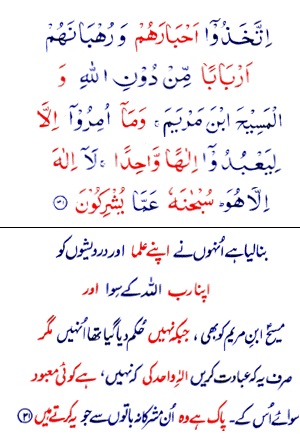 اِتَّخَذُوْٓا اَحْبَارَهُمْ وَ رُهْبَانَهُمْ
اَرْبَابًا مِّنْ دُوْنِ اللهِ وَ
الْمَسِيْحَ ابْنَ مَرْيَمَ ۚ وَمَاۤ اُمِرُوْۤا اِلَّا
لِيَعْبُدُوْۤا اِلٰهًا وَّاحِدًا ۚ لَاۤ اِلٰهَ
اِلَّا هُوَ ؕ سُبْحٰنَهٗ عَمَّا يُشْرِكُوْنَ ﴿۳۱﴾
بنا لیا ہے اُنہوں نے اپنے علما اور درویشوں کو
اپنا رب اللہ کے سوا اور
مسیحؑ ابنِ مریم کو بھی ، جبکہ نہیں حُکم دیا گیا تھا اُنہیں مگر
صرف یہ کہ عبادت کریں الٰہِ واحد کی کہ نہیں، ہے کوئی معبود
سوائے اُس کے۔ پاک ہے وہ اُن مشرکانہ باتوں سے جو یہ کرتے ہیں ﴿۳۱﴾